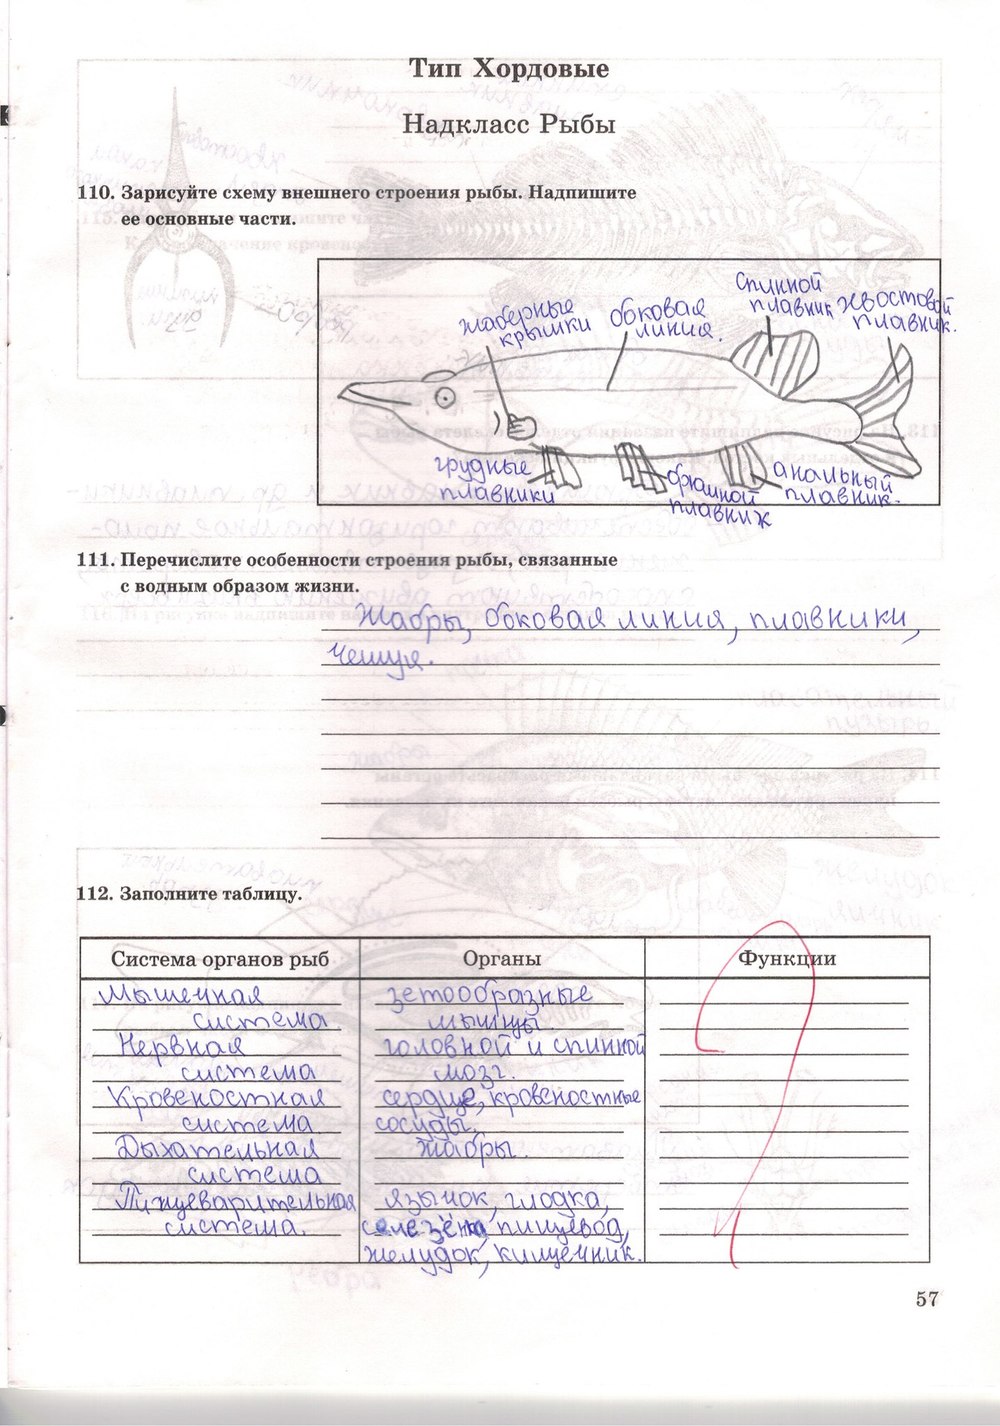 Тип Хордовые
Надкласс Рыбы
110. Зарисуйте схему внешнего строения рыбы. Надпишите
ее основные части.
жаберные
крышки
боковая
линия.
спинной
плавник
хвостовой
плавник.
грудные
плавники
брюшной
плавниж
анальный
плавник.
111. Перечислите особенности строения рыбы, связанные
с водным образом жизни.
Жабры, боковая линия, плавники,
чешуя.
112. Заполните таблицу.
Система органов рыб
Органы
Функции
Мышечная
система
зетообразные
мышцы
Нервная
система
головной и спинной
мозг.
Кровеностная
система
сердце, кровеностные
сосуды.
Дыхательная
система
Жабры.
Пищеварительная
система.
язычок, глодка,
пищевод,
желудок, кишечник.
57